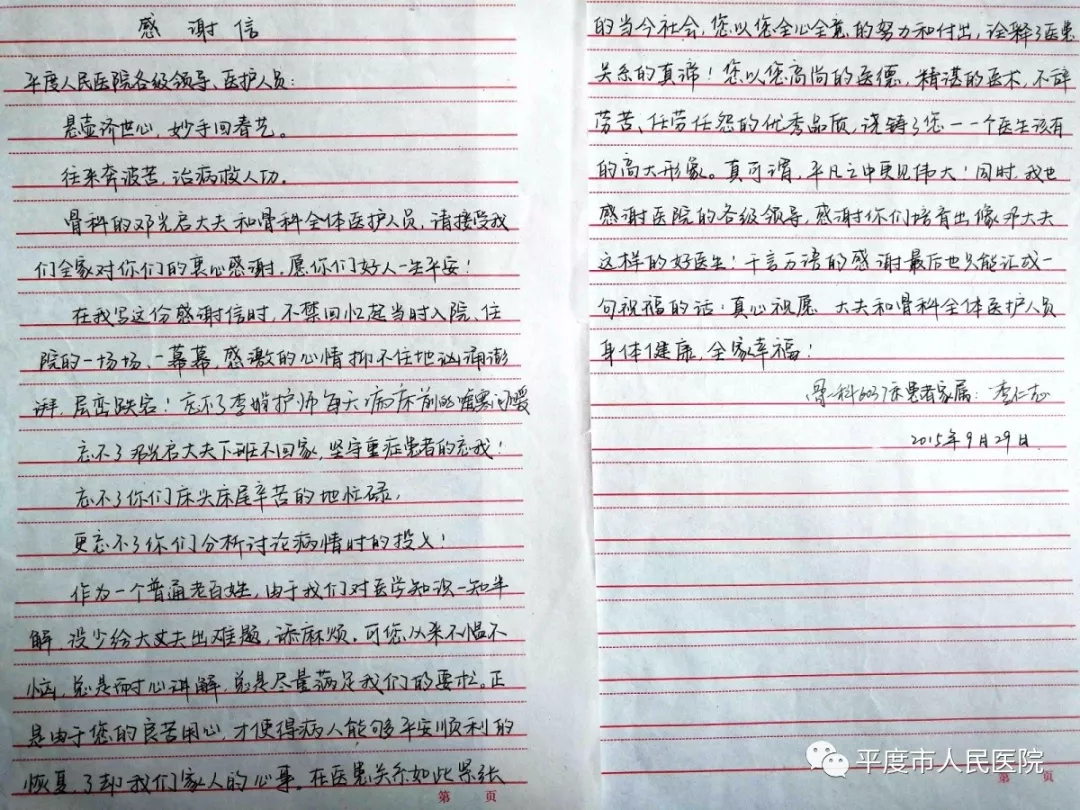 感谢信
平度人民医院各级领导、医护人员:
悬壶济世心,妙手回春艺。
往来奔波苦,治病救人功。
骨科的邓光启大夫和骨科全体医护人员,请接受我
们全家对你们的衷心感谢,愿你们好人一生平安!
在我写这份感谢信时,不禁回忆起当时入院、住
院的一场场、一幕幕,感激的心情抑不住地汹涌澎
湃,层峦跌宕!忘不了李娟护师每天病床前的嘘寒问暖
忘不了邓光启大夫下班不回家,坚守重症患者的忘我!
忘不了你们床头床尾辛苦的地忙碌,
更忘不了你们分析讨论病情时的投入!
作为一个普通老百姓,由于我们对医学知识一知半
解,没少给大丈夫出难题,添麻烦。可您从来不愠不
恼,总是耐心讲解,总是尽量满足我们的要求。正
是由于您的良苦用心,才使得病人能够平安顺利的
恢复,了却我们家人的心事。在医患关系如此紧张
第 页
的当今社会,您以您全心全意的努力和付出,诠释了医患
关系的真谛!您以您高尚的医德,精谌的医术,不辞
劳苦、任劳任怨的优秀品质,浇铸了您一一个医生该有
的高大形象。真可谓,平凡之中更见伟大!同时,我也
感谢医院的各级领导,感谢你们培育出像邓大夫
这样的好医生!千言万语的感谢最后也只能汇成一
句祝福的话:真心祝愿 大夫和骨科全体医护人员
身体健康,全家幸福!
骨科6037床患者家属:李仁志
2015年9月29日
第 页
平度市人民医院